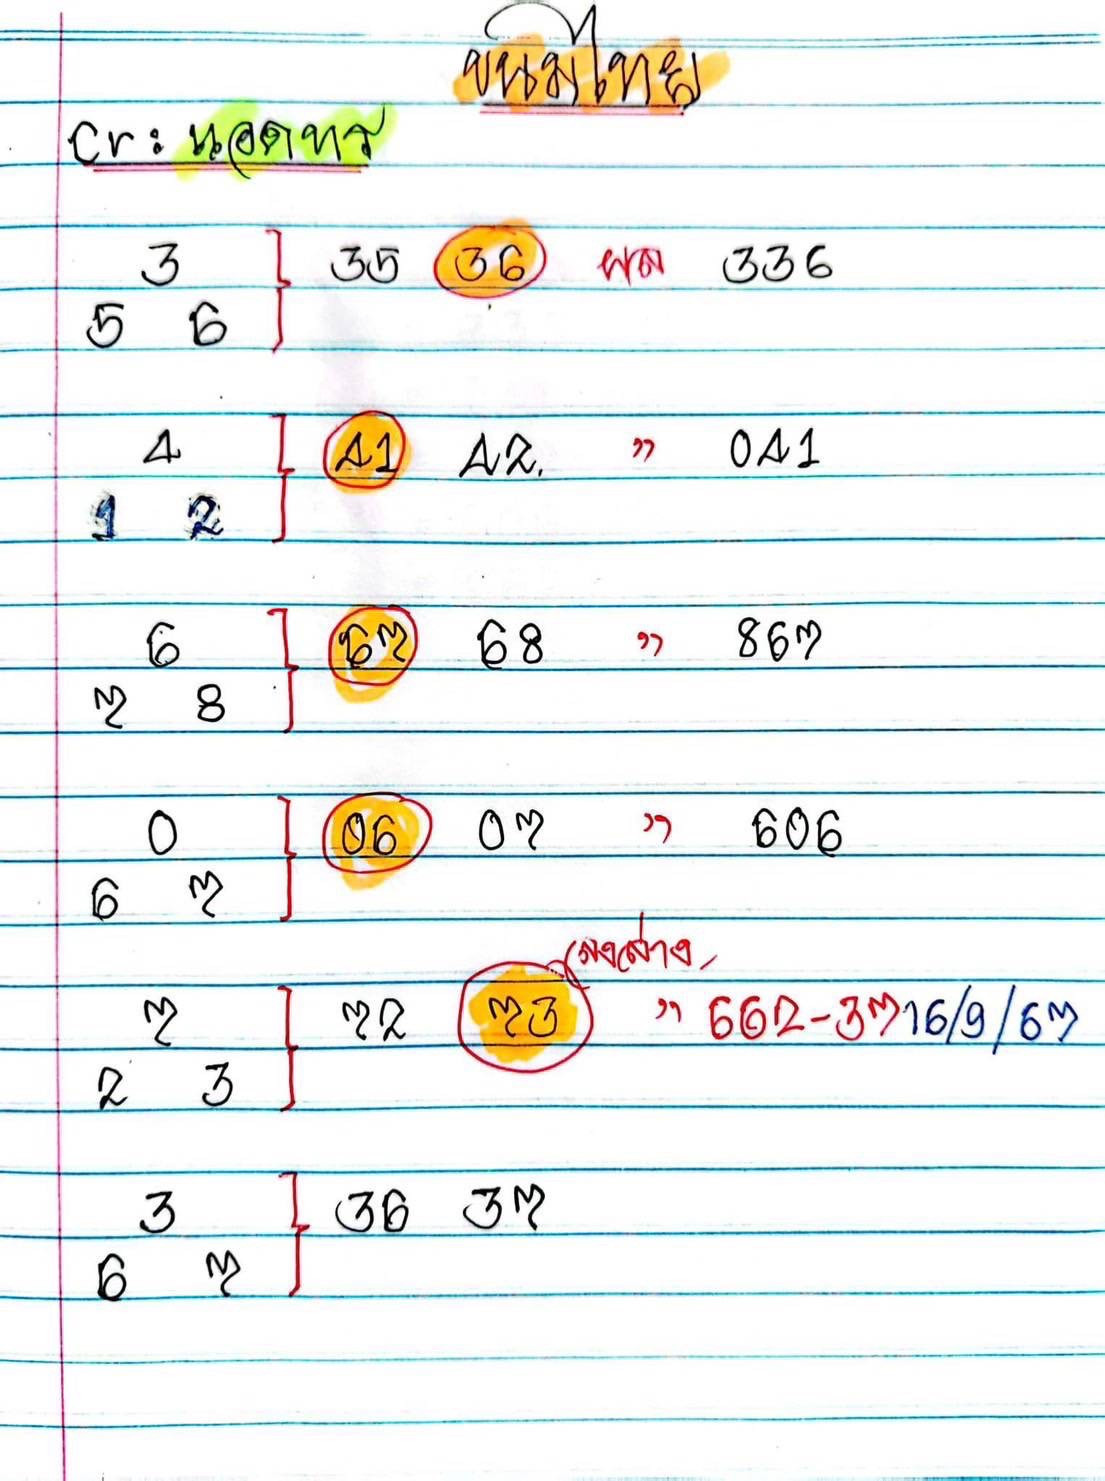 ขนมไทย
cr: นอตทร
3
35 36 ผล 336
5 6
4
41 42. " 041
1 2
6
67 68 " 867
7 8
0
06 07 " 606
6 7
ลงล่าง
7
72 73 " 662-37 16/9/67
2 3
3
36 37
6 7